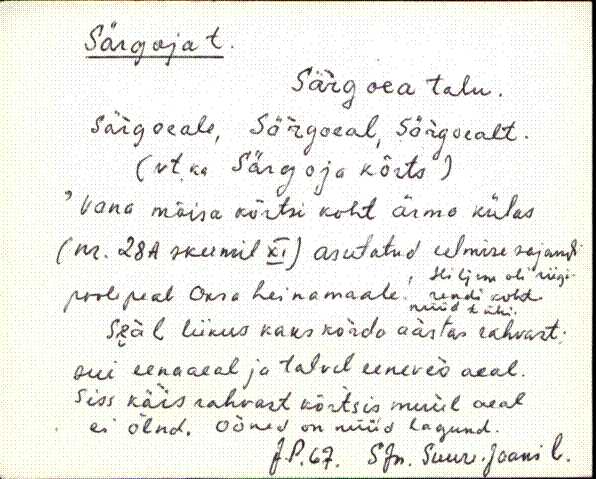 Särgoja t.
Särgoea talu.
Särgoeale, Särgoeal, Särgoealt.
(vt ka Särgoja kõrts)
Vana mõisa kõrtsi koht ärmo külas
(nr. 28A skeemil XI) asutatud eelmise sajandi
poolepeal Oksa heinamaale. Hiljem oli riigi-
rendi koht
nüüd tühi.
Szäl liikus kaks kõrda aastas rahvast:
sui eenaaeal ja talvel eeneveo aeal.
Siss käis rahvast kõrtsis muul aeal
ei õlnd. Ooned on nüüd lagund.
J.P. 67. SJn. Suure-Jaani l.